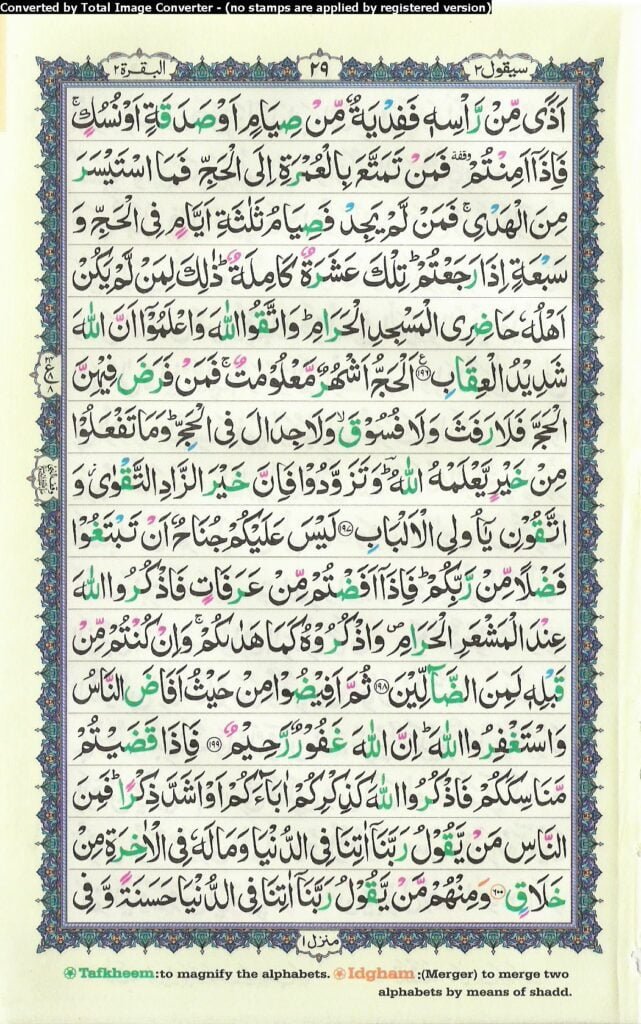 Converted by Total Image Converter - (no stamps are applied by registered version)
سیقول ۲ ۲۹ البقرة ۲
اَذًى مِّنْ رَّاْسِهٖ فَفِدْیَةٌ مِّنْ صِیَامٍ اَوْ صَدَقَةٍ اَوْ نُسُكٍ ۚ
فَاِذَاۤ اَمِنْتُمْ وقفة فَمَنْ تَمَتَّعَ بِالْعُمْرَةِ اِلَى الْحَجِّ فَمَا اسْتَیْسَرَ
مِنَ الْهَدْیِ ۚ فَمَنْ لَّمْ یَجِدْ فَصِیَامُ ثَلٰثَةِ اَیَّامٍ فِی الْحَجِّ وَ
سَبْعَةٍ اِذَا رَجَعْتُمْ ؕ تِلْكَ عَشَرَةٌ كَامِلَةٌ ؕ ذٰلِكَ لِمَنْ لَّمْ یَكُنْ
اَهْلُهٗ حَاضِرِی الْمَسْجِدِ الْحَرَامِ ؕ وَاتَّقُوا اللّٰهَ وَاعْلَمُوْۤا اَنَّ اللّٰهَ
شَدِیْدُ الْعِقَابِ ﴿۱۹۶﴾ اَلْحَجُّ اَشْهُرٌ مَّعْلُوْمٰتٌ ۚ فَمَنْ فَرَضَ فِیْهِنَّ
الْحَجَّ فَلَا رَفَثَ وَلَا فُسُوْقَ ۙ وَلَا جِدَالَ فِی الْحَجِّ ؕ وَمَا تَفْعَلُوْا
مِنْ خَیْرٍ یَّعْلَمْهُ اللّٰهُ ؕ وَتَزَوَّدُوْا فَاِنَّ خَیْرَ الزَّادِ التَّقْوٰى ؗ وَ
اتَّقُوْنِ یٰۤاُولِی الْاَلْبَابِ ﴿۱۹۷﴾ لَیْسَ عَلَیْكُمْ جُنَاحٌ اَنْ تَبْتَغُوْا
فَضْلًا مِّنْ رَّبِّكُمْ ؕ فَاِذَاۤ اَفَضْتُمْ مِّنْ عَرَفَاتٍ فَاذْكُرُوا اللّٰهَ
عِنْدَ الْمَشْعَرِ الْحَرَامِ ۪ وَاذْكُرُوْهُ كَمَا هَدٰىكُمْ ۚ وَاِنْ كُنْتُمْ مِّنْ
قَبْلِهٖ لَمِنَ الضَّآلِّیْنَ ﴿۱۹۸﴾ ثُمَّ اَفِیْضُوْا مِنْ حَیْثُ اَفَاضَ النَّاسُ
وَاسْتَغْفِرُوا اللّٰهَ ؕ اِنَّ اللّٰهَ غَفُوْرٌ رَّحِیْمٌ ﴿۱۹۹﴾ فَاِذَا قَضَیْتُمْ
مَّنَاسِكَكُمْ فَاذْكُرُوا اللّٰهَ كَذِكْرِكُمْ اٰبَآءَكُمْ اَوْ اَشَدَّ ذِكْرًا ؕ فَمِنَ
النَّاسِ مَنْ یَّقُوْلُ رَبَّنَاۤ اٰتِنَا فِی الدُّنْیَا وَمَا لَهٗ فِی الْاٰخِرَةِ مِنْ
خَلَاقٍ ﴿۲۰۰﴾ وَمِنْهُمْ مَّنْ یَّقُوْلُ رَبَّنَاۤ اٰتِنَا فِی الدُّنْیَا حَسَنَةً وَّ فِی
منزل ۱
Tafkheem:to magnify the alphabets. Idgham :(Merger) to merge two
alphabets by means of shadd.